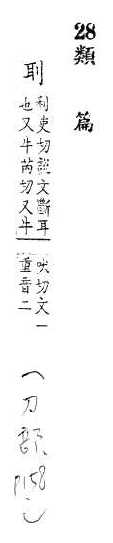 28類篇
刵
利吏切說文斷耳
也又牛芮切又牛
吠切文一
重音二
(刀部、P158)